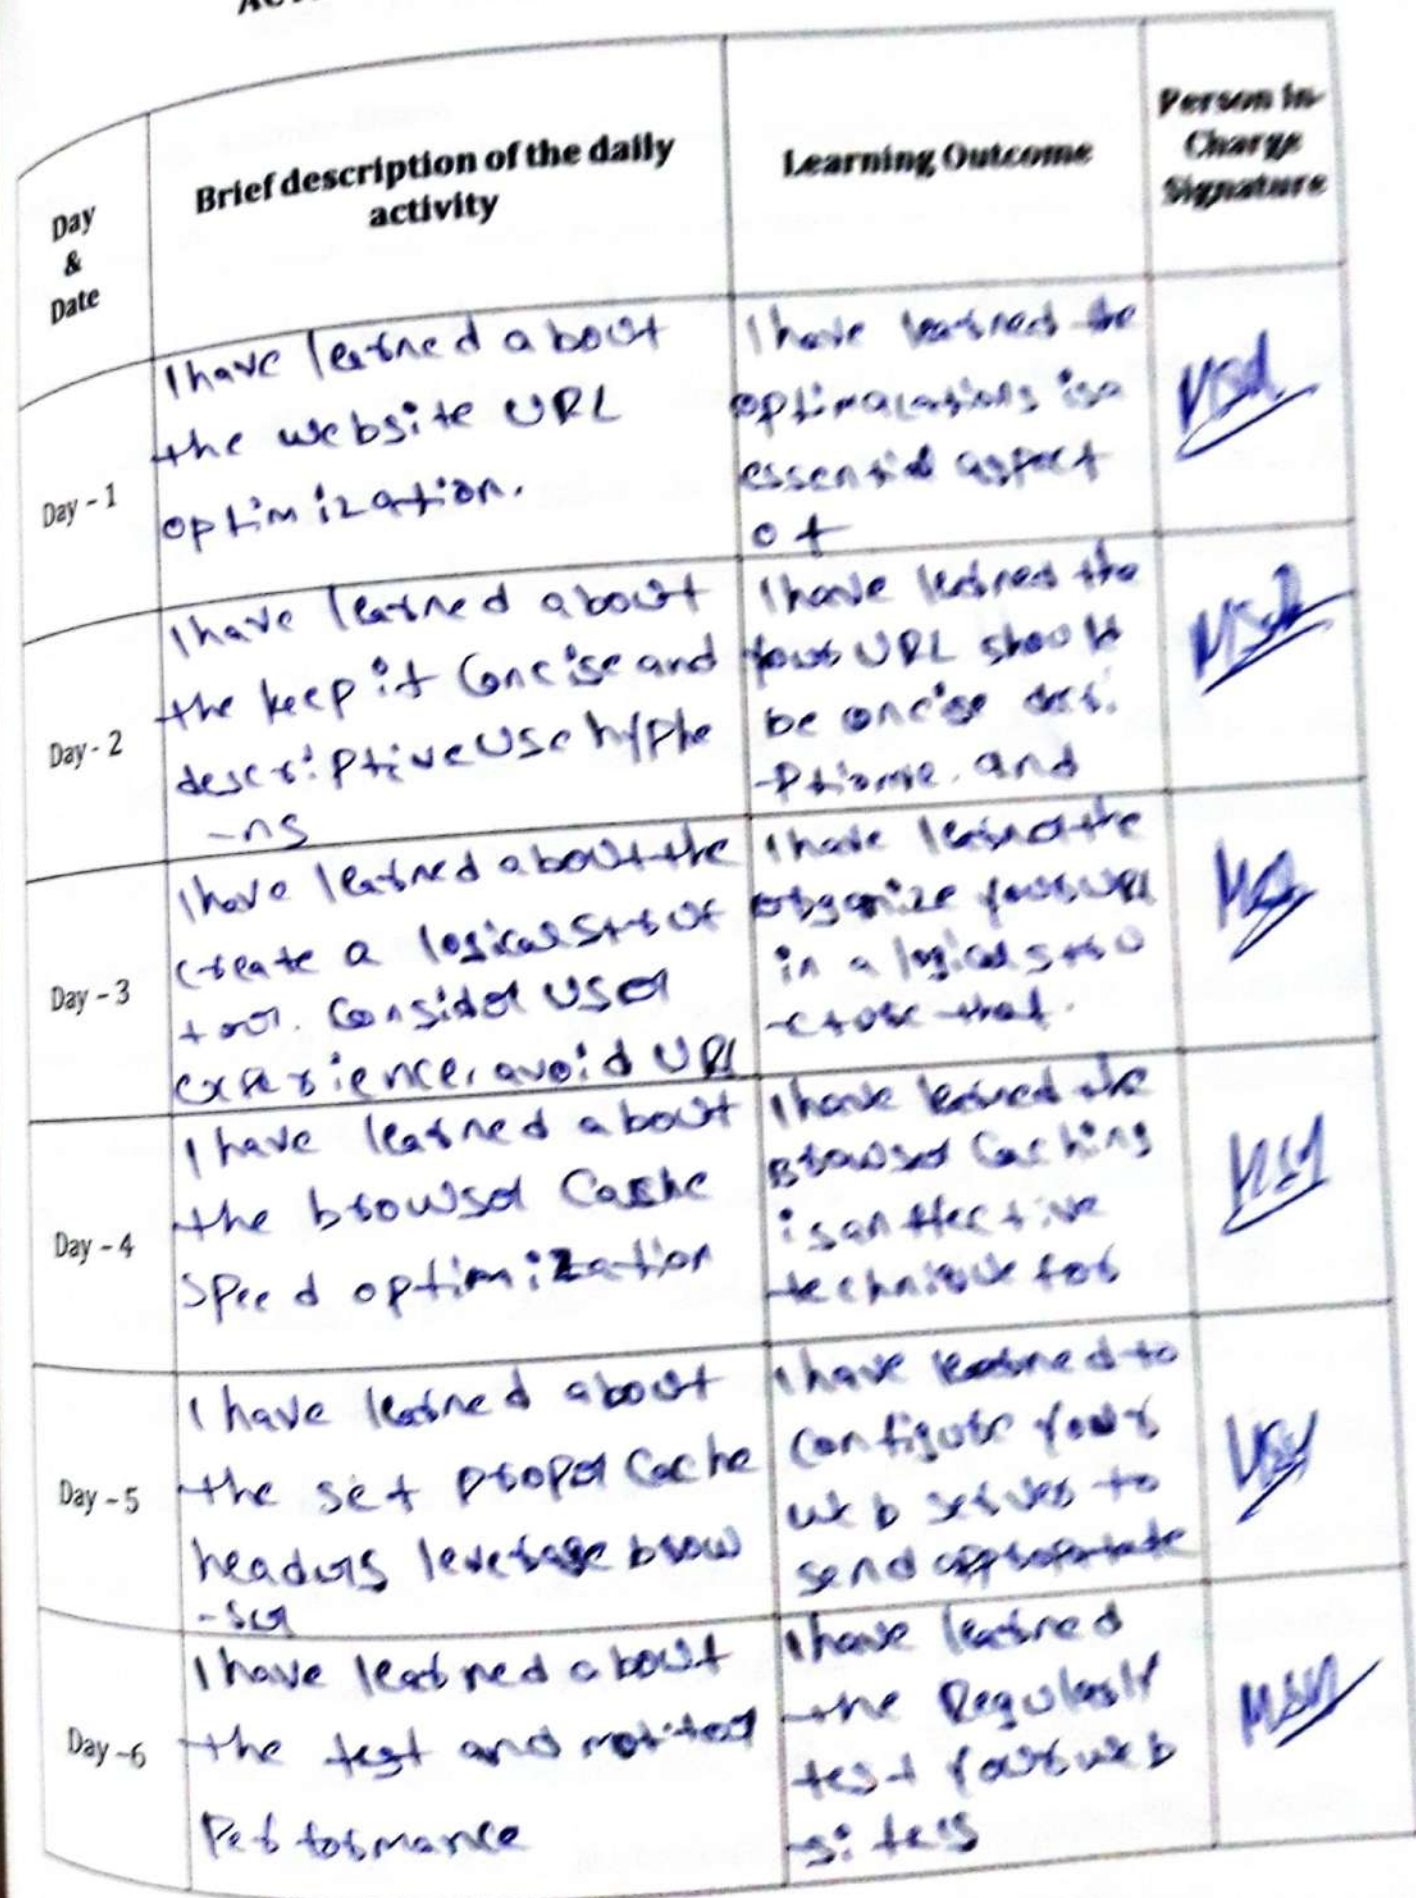 Day
&
Date
Brief description of the daily
activity
Learning Outcome
Person in-
Charge
Signature
Day - 1
I have learned about
the website URL
optimization.
I have learned the
optimizations is a
essential aspect
of
Day - 2
I have learned about
the keep it Concise and
descriptive use hyphe
-ns
I have learned the
your URL should
be concise des.
and
Day - 3
I have learned about the
create a logical struc
Consider user
experience, avoid URL
I have learned the
organize your URL
in a logical stru
-cture that.
Day - 4
I have learned about
the browser Cache
Speed optimization
I have learned the
Browser Caching
is an effective
technique for
Day - 5
I have learned about
the set proper Cache
headers leverage brow
-ser
I have learned to
Configure your
web server to
send
Day -6
I have learned about
the test and
Performance
I have learned
the Regularly
test your web
-site's